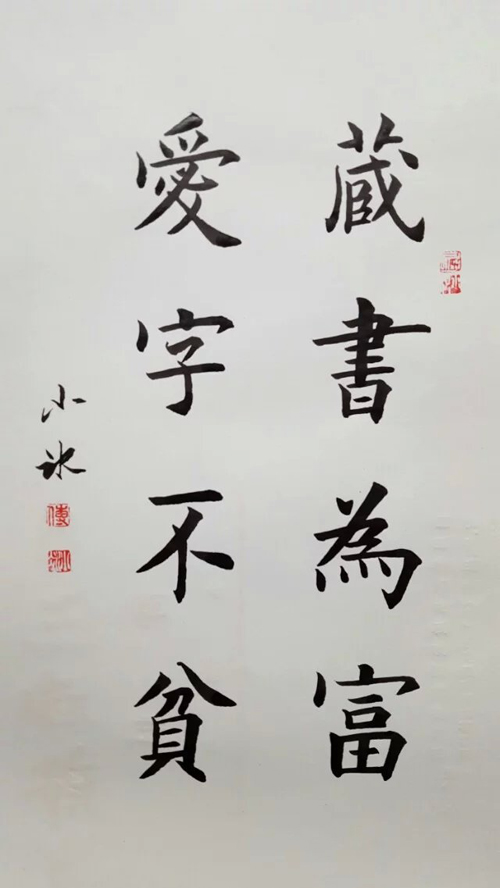 蔵書為富
愛字不貧
小冰